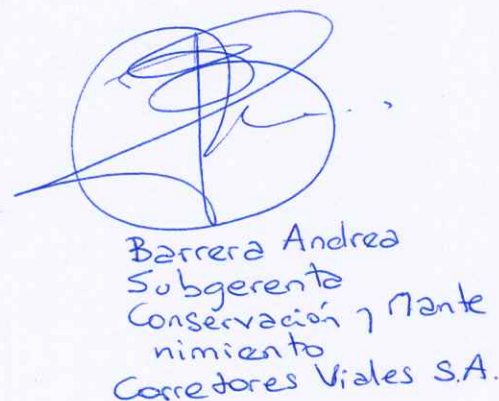 Barrera Andrea
Subgerente
Conservación y Mante
nimiento
Corredores Viales S.A.